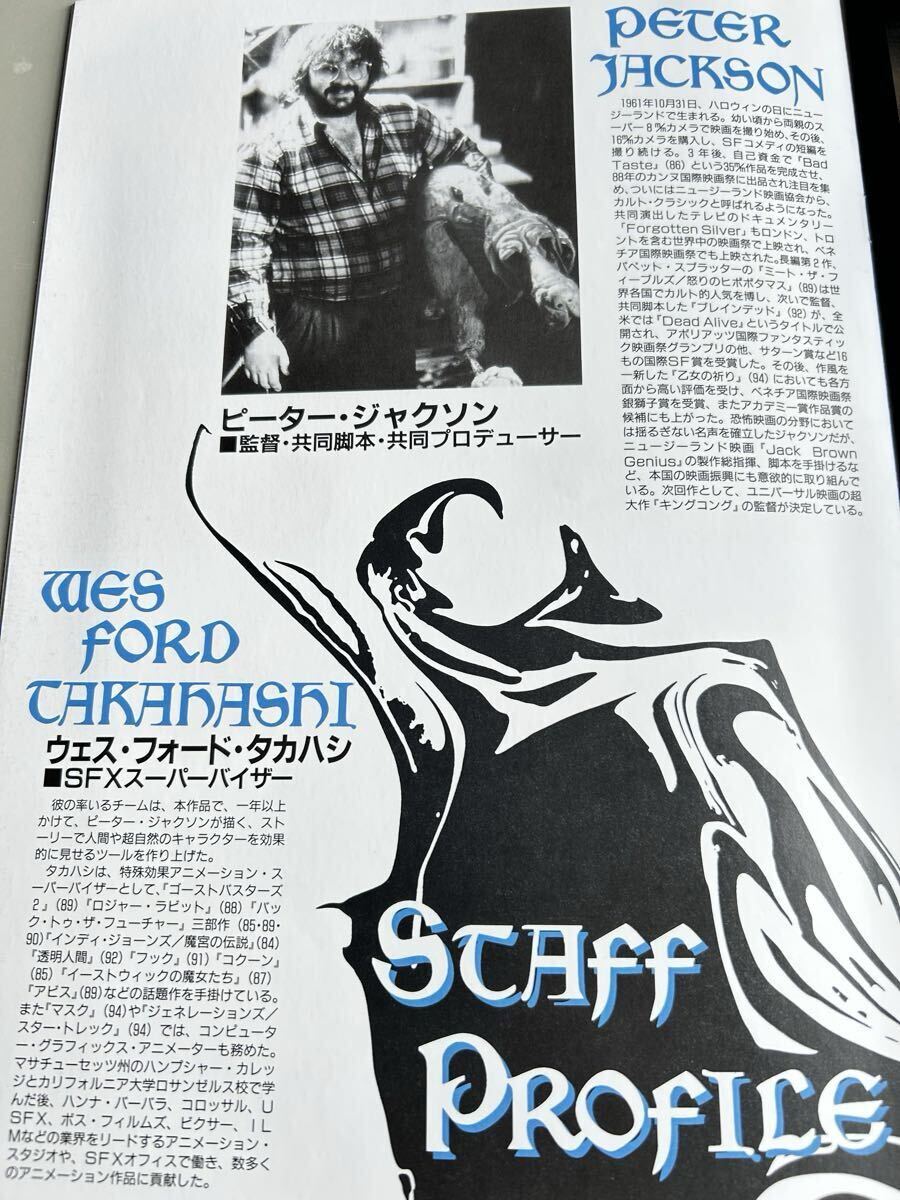 PETER
JACKSON
1961年10月31日、ハロウィンの日にニュー
ジーランドで生まれる。幼い頃から両親のス
ーパー8㎜カメラで映画を撮り始め、その後、
16㎜カメラを購入し、SFコメディの短編を
撮り続ける。3年後、自己資金で『Bad
Taste』(86)という35㎜作品を完成させ、
88年のカンヌ国際映画祭に出品され注目を集
め、ついにはニュージーランド映画協会から、
カルト・クラシックと呼ばれるようになった。
共同演出したテレビのドキュメンタリー
「Forgotten Silver」もロンドン、トロ
ントを含む世界中の映画祭で上映され、ベネ
チア国際映画祭でも上映された。長編第2作、
パペット・スプラッターの『ミート・ザ・フ
ィーブルズ/怒りのヒポポタマス』(89)は世
界各国でカルト的人気を博し、次いで監督、
共同脚本した『ブレインデッド』(92)が、全
米では『Dead Alive』というタイトルで公
開され、アボリアッツ国際ファンタスティッ
ク映画祭グランプリの他、サターン賞など16
もの国際SF賞を受賞した。その後、作風を
一新した『乙女の祈り』(94)においても各方
面から高い評価を受け、ベネチア国際映画祭
銀獅子賞を受賞、またアカデミー賞作品賞の
候補にも上がった。恐怖映画の分野において
は揺るぎない名声を確立したジャクソンだが、
ニュージーランド映画『Jack Brown
Genius』の製作総指揮、脚本を手掛けるな
ど、本国の映画振興にも意欲的に取り組んで
いる。次回作として、ユニバーサル映画の超
大作『キングコング』の監督が決定している。
ピーター・ジャクソン
■監督・共同脚本・共同プロデューサー
WES
FORD
TAKAHASHI
ウェス・フォード・タカハシ
■SFXスーパーバイザー
彼の率いるチームは、本作品で、一年以上
かけて、ピーター・ジャクソンが描く、スト
ーリーで人間や超自然のキャラクターを効果
的に見せるツールを作り上げた。
タカハシは、特殊効果アニメーション・ス
ーパーバイザーとして、『ゴーストバスターズ
2』(89)『ロジャー・ラビット』(88)『バッ
ク・トゥ・ザ・フューチャー』三部作(85・89・
90)『インディ・ジョーンズ/魔宮の伝説』(84)
『透明人間』(92)『フック』(91)『コクーン』
(85)『イーストウィックの魔女たち』(87)
『アビス』(89)などの話題作を手掛けている。
また『マスク』(94)や『ジェネレーションズ/
スター・トレック』(94)では、コンピュータ
ー・グラフィックス・アニメーターも務めた。
マサチューセッツ州のハンプシャー・カレッ
ジとカリフォルニア大学ロサンゼルス校で学
んだ後、ハンナ・バーバラ、コロッサル、U
SFX、ボス・フィルムズ、ピクサー、IL
Mなどの業界をリードするアニメーション・
スタジオや、SFXオフィスで働き、数多く
のアニメーション作品に貢献した。
STAFF
PROFILE